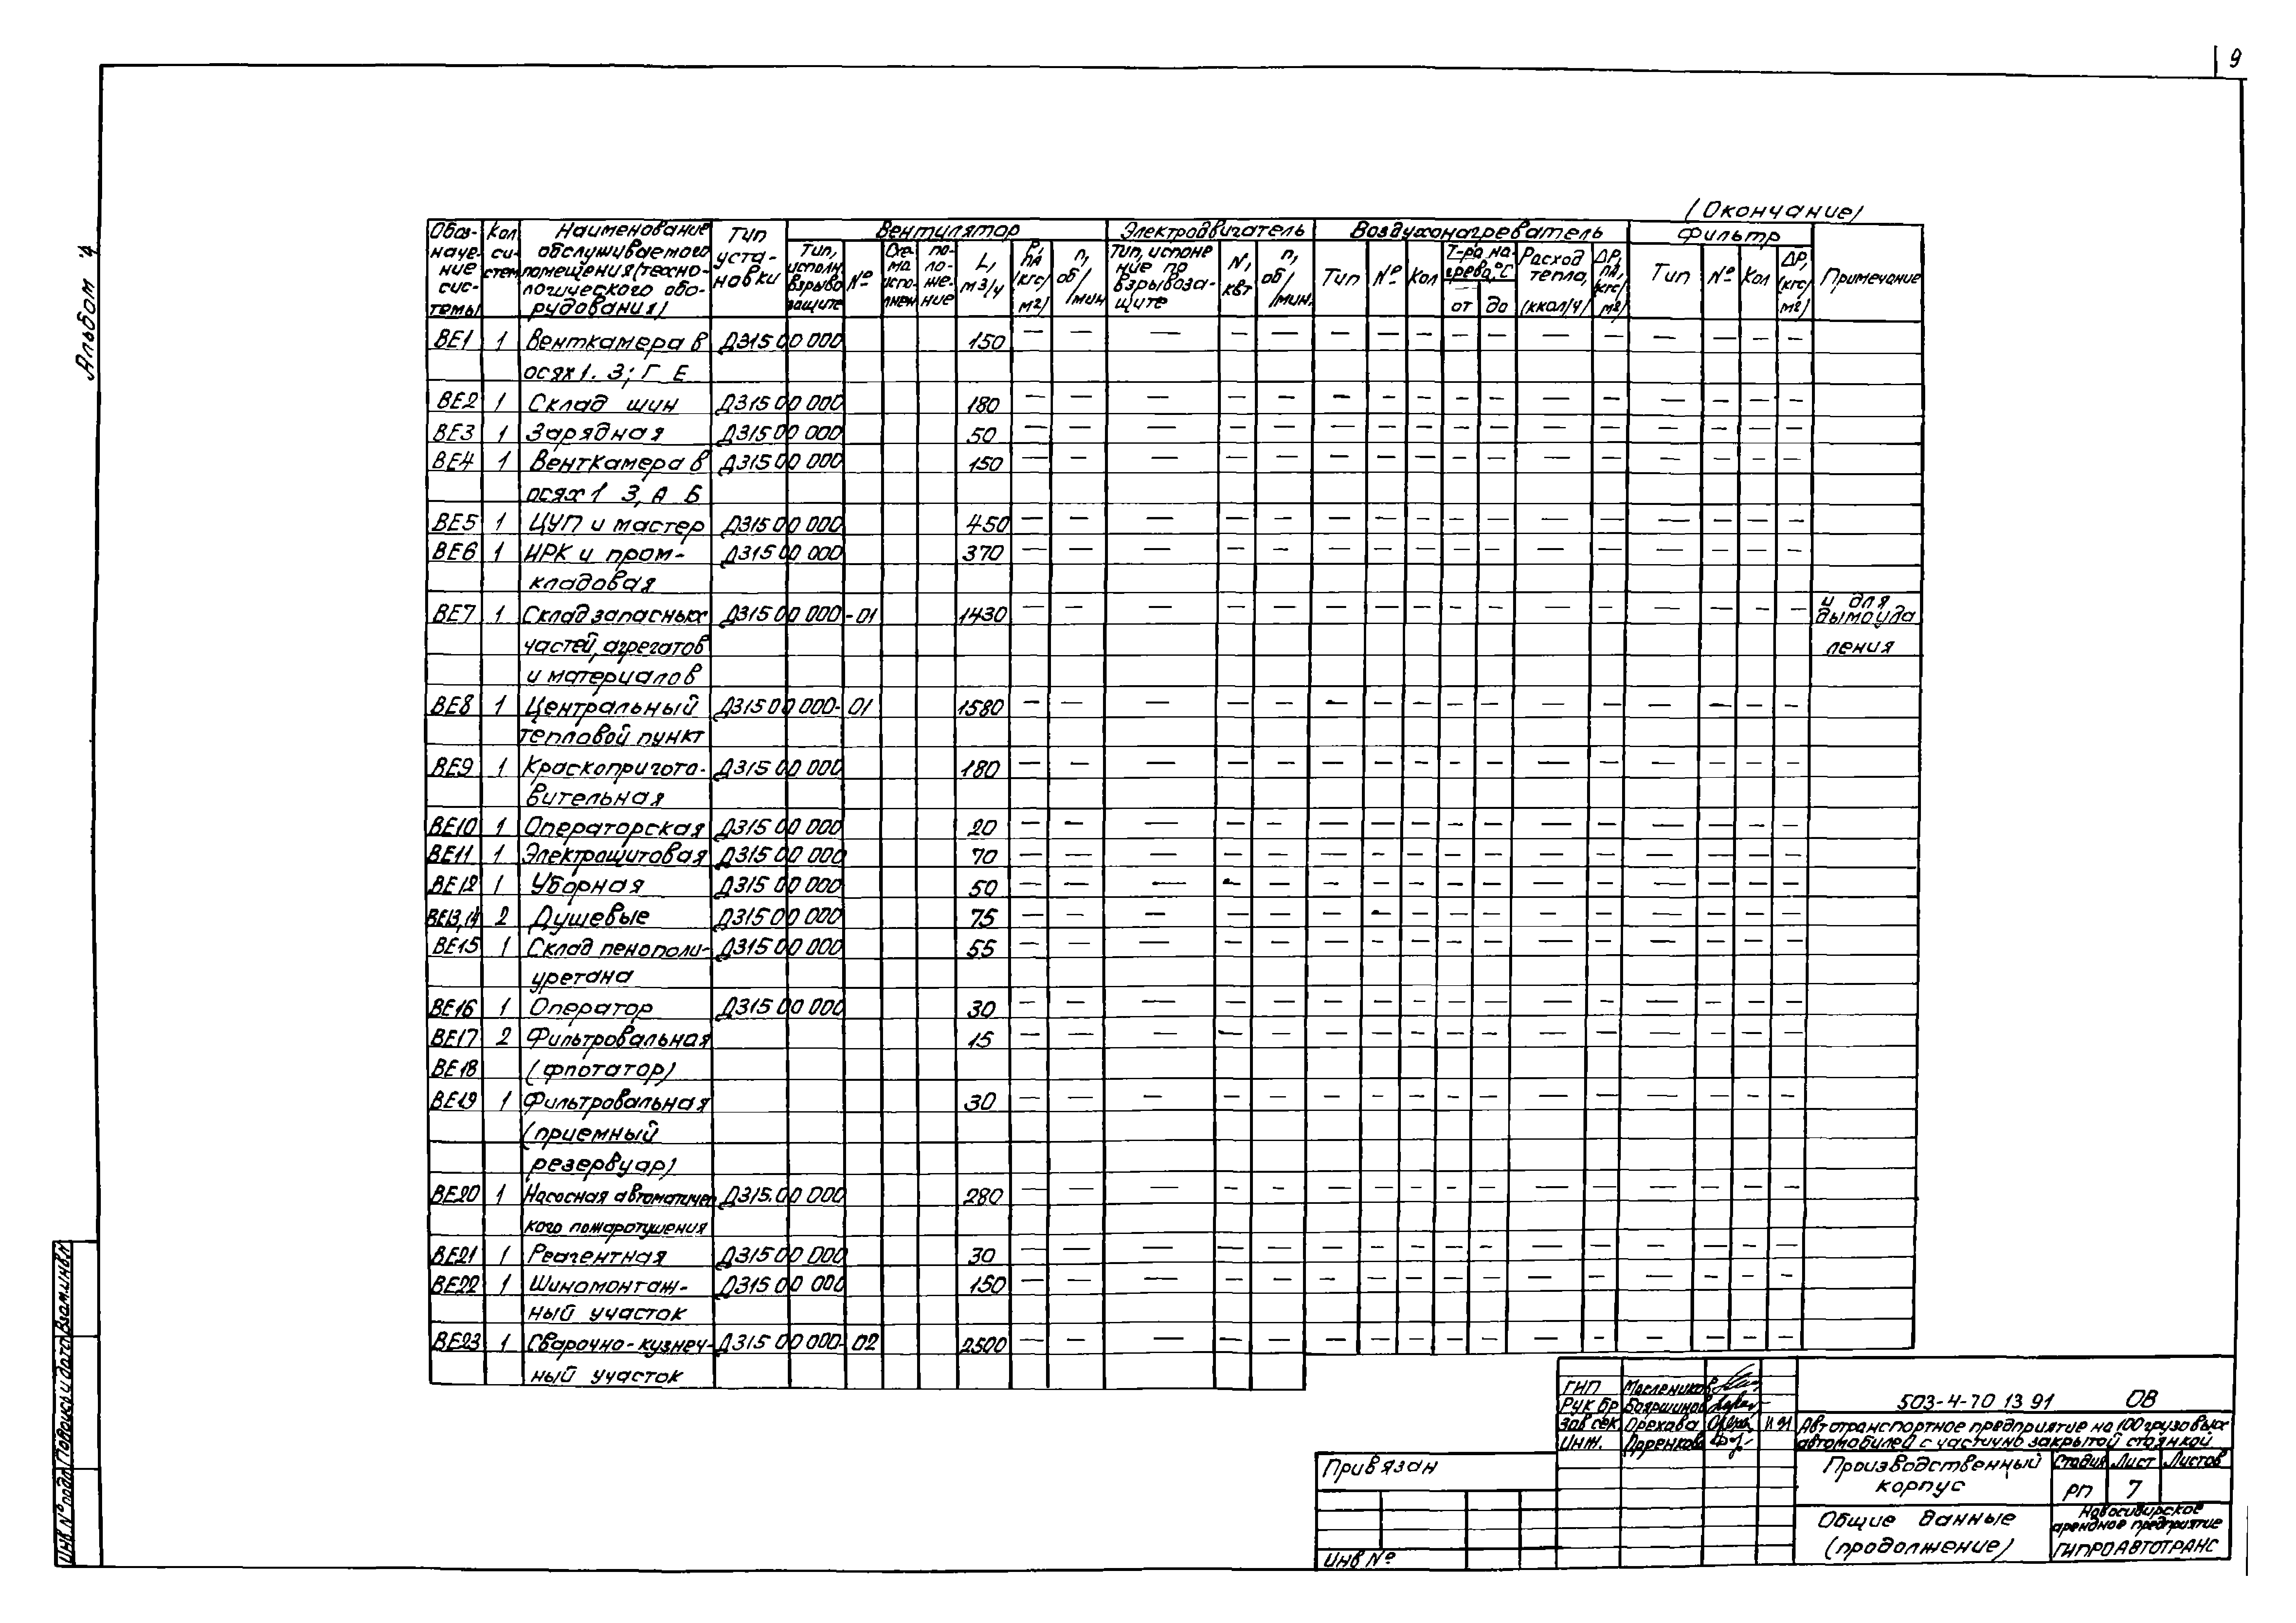 9
Альбом 4
(Окончание)
Обоз-наче-ние сис-темы Кол си-стем Наименование обслуживаемого помещения (техно-логического обо-рудования) Тип уста-новки Вентилятор Электродвигатель Воздухонагреватель Фильтр Примечание
Тип, исполн. взрыво защите № Схе-ма испо-лнен по-ло-же-ние L, м3/ч Р, ПА (кгс/м2) п, об/мин Тип, исполне ние по взрывоза-щите N, квт п, об/мин. Тип № Кол Т-ра на-грева,°С от до Расход тепла, (ккал/ч) ΔР, ПА, (кгс/м2) Тип № Кол ΔР, (кгс/м2)
ВЕ1 1 Венткамера в Д315 00 000 150 — — — — — — — — — — — — — — — —
осях 1. 3; Г Е
ВЕ2 1 Склад шин Д315 00 000 180 — — — — — — — — — — — — — — — —
ВЕ3 1 Зарядная Д315 00 000 50 — — — — — — — — — — — — — — — —
ВЕ4 1 Венткамера в Д315 00 000 150 — — — — — — — — — — — — — — — —
осях 1 3, А Б
ВЕ5 1 ЦУП и мастер Д315 00 000 450 — — — — — — — — — — — — — — — —
ВЕ6 1 ИРК и пром- Д315 00 000 370 — — — — — — — — — — — — — — — —
кладовая
ВЕ7 1 Склад запасных Д315 00 000 -01 1430 — — — — — — — — — — — — — — — — и для дымоуда
частей, агрегатов ления
и материалов
ВЕ8 1 Центральный Д315 00 000- 01 1580 — — — — — — — — — — — — — — — —
тепловой пункт
ВЕ9 1 Краскопригото- Д315 00 000 180 — — — — — — — — — — — — — — — —
вительная
ВЕ10 1 Операторская Д315 00 000 20 — — — — — — — — — — — — — — — —
ВЕ11 1 Электрощитовая Д315 00 000 70 — — — — — — — — — — — — — — — —
ВЕ12 1 Уборная Д315 00 000 50 — — — — — — — — — — — — — — — —
ВЕ13,14 2 Душевые Д315 00 000 75 — — — — — — — — — — — — — — — —
ВЕ15 1 Склад пенополи- Д315 00 000 55 — — — — — — — — — — — — — — — —
уретана
ВЕ16 1 Оператор Д315 00 000 30 — — — — — — — — — — — — — — — —
ВЕ17 2 Фильтровальная 15 — — — — — — — — — — — — — — — —
ВЕ18 (флотатор)
ВЕ19 1 Фильтровальная 30 — — — — — — — — — — — — — — — —
(приемный
резервуар)
ВЕ20 1 Насосная автоматичес Д315.00 000 280 — — — — — — — — — — — — — — — —
кого пожаротушения
ВЕ21 1 Реагентная Д315 00 000 30 — — — — — — — — — — — — — — — —
ВЕ22 1 Шиномонтаж- Д315 00 000 150 — — — — — — — — — — — — — — — —
ный участок
ВЕ23 1 Сварочно-кузнеч- Д315 00 000- 02 2500 — — — — — — — — — — — — — — — —
ный участок
ГИП Маслеников
Рук бр Бояршинов
Зав сек. Орехова 11 91
Инж.
503-4-70 13 91 ОВ
Автотранспортное предприятие на 100 грузовых
автомобилей с частично закрытой стоянкой
Производственный
корпус
Стадия Лист Листов
РП 7
Общие данные
(продолжение)
Новосибирское
арендное предприятие
ГИПРОАВТОТРАНС
Привязан
Инв №
Инв. № подл Подпись и дата Взам.инв.№